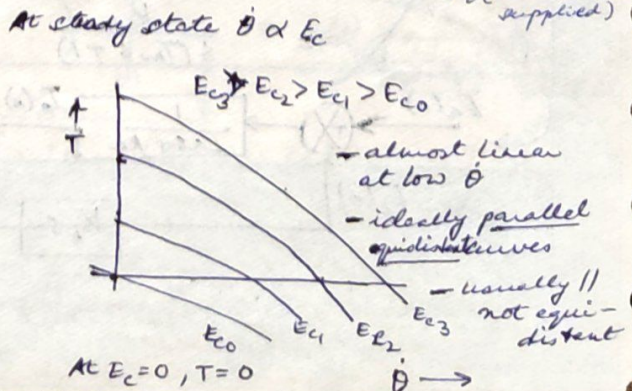 supplied)
At steady state θ̇ ∝ Ec
Ec3 > Ec2 > Ec1 > Ec0
↑
T
- almost linear
at low θ̇
- ideally parallel
equidistant curves
- usually ||
not equi-
distant
Ec0
Ec1
Ec2
Ec3
At Ec=0, T=0
θ̇ →